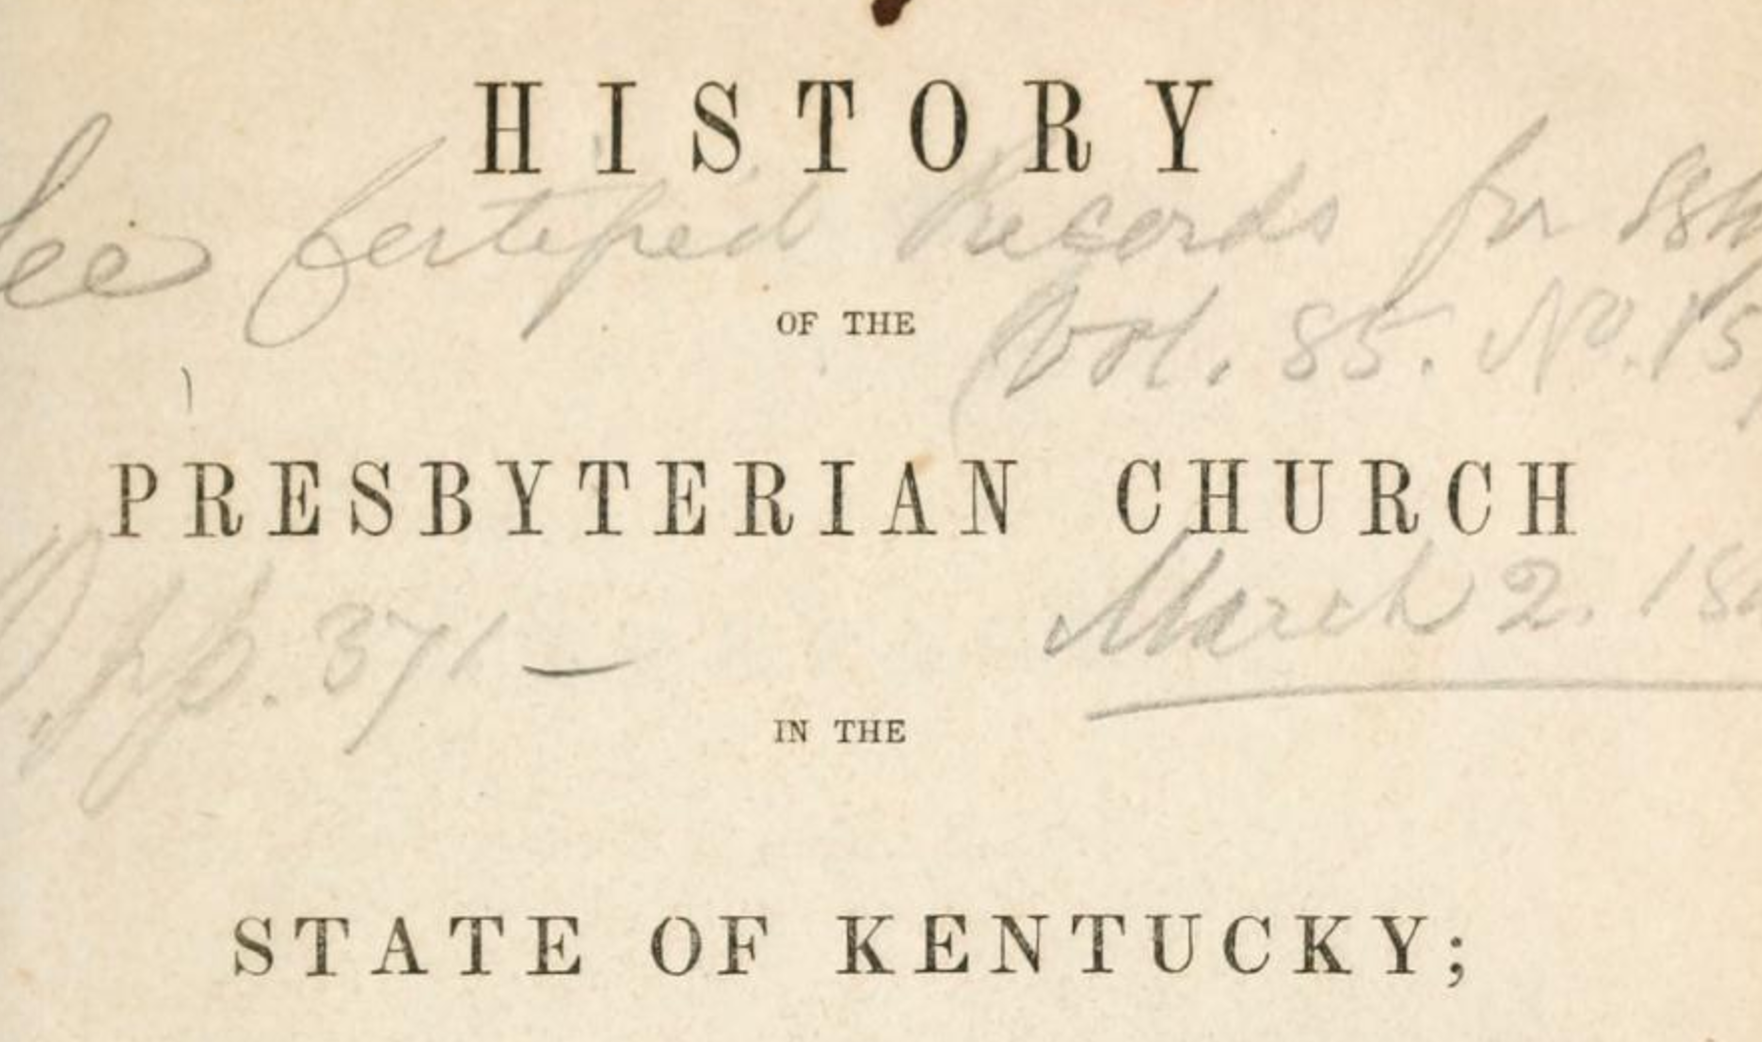 HISTORY
See Certified Records for
OF THE
(Vol. 85. No. 15
PRESBYTERIAN CHURCH
March 2.
pp. 371 —
IN THE
STATE OF KENTUCKY;